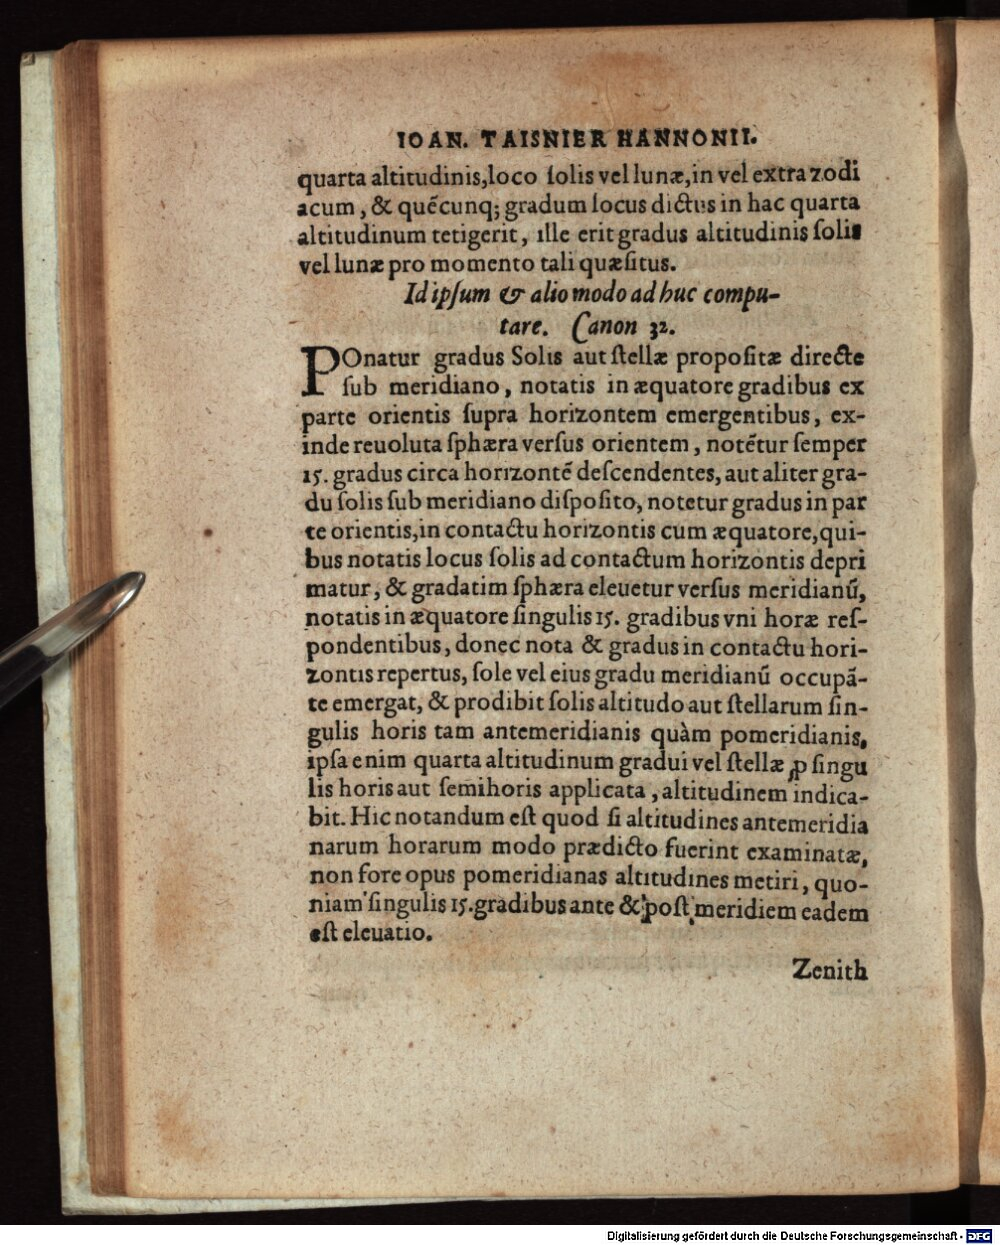 IOAN. TAISNIER HANNONII.
quarta altitudinis,loco ſolis vel lunæ,in vel extra zodi
acum, & quẽcunq; gradum locus dictus in hac quarta
altitudinum tetigerit, ille erit gradus altitudinis ſolis
vel lunæ pro momento tali quæſitus.
Id ipſum & alio modo ad huc compu-
tare. Canon 32.
POnatur gradus Solis aut ſtellæ propoſitæ directe
ſub meridiano, notatis in æquatore gradibus ex
parte orientis ſupra horizontem emergentibus, ex-
inde reuoluta ſphæra verſus orientem, notẽtur ſemper
15. gradus circa horizontẽ deſcendentes, aut aliter gra-
du ſolis ſub meridiano diſpoſito, notetur gradus in par
te orientis,in contactu horizontis cum æquatore,qui-
bus notatis locus ſolis ad contactum horizontis depri
matur, & gradatim ſphæra eleuetur verſus meridianũ,
notatis in æquatore ſingulis 15. gradibus vni horæ reſ-
pondentibus, donec nota & gradus in contactu hori-
zontis repertus, ſole vel eius gradu meridianũ occupã-
te emergat, & prodibit ſolis altitudo aut ſtellarum ſin-
gulis horis tam antemeridianis quàm pomeridianis,
ipſa enim quarta altitudinum gradui vel ſtellæ ꝓ ſingu
lis horis aut ſemihoris applicata, altitudinem indica-
bit. Hic notandum eſt quod ſi altitudines antemeridia
narum horarum modo prædicto fuerint examinatæ,
non fore opus pomeridianas altitudines metiri, quo-
niam ſingulis 15.gradibus ante & poſt meridiem eadem
eſt eleuatio.
Zenith
Digitalisierung gefördert durch die Deutsche Forschungsgemeinschaft - DFG